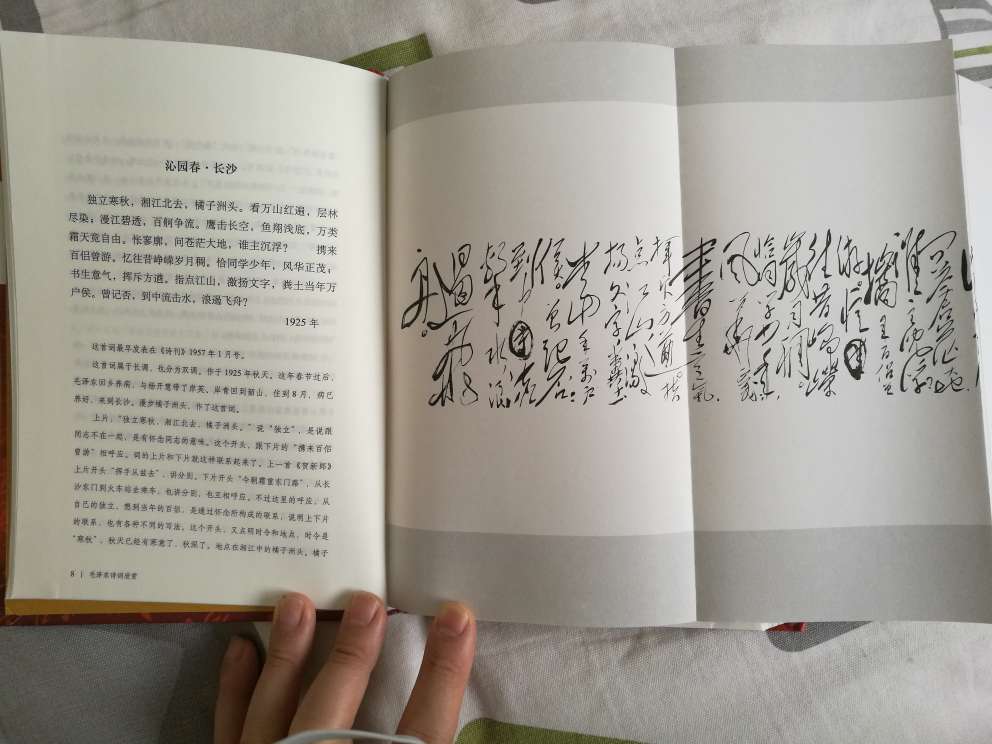 沁园春·长沙
独立寒秋，湘江北去，橘子洲头。看万山红遍，层林
尽染；漫江碧透，百舸争流。鹰击长空，鱼翔浅底，万类
霜天竞自由。怅寥廓，问苍茫大地，谁主沉浮？　　携来
百侣曾游，忆往昔峥嵘岁月稠。恰同学少年，风华正茂；
书生意气，挥斥方遒。指点江山，激扬文字，粪土当年万
户侯。曾记否，到中流击水，浪遏飞舟？
1925 年
这首词最早发表在《诗刊》1957 年 1 月号。
这首词属于长调，也分为双调。作于 1925 年秋天。这年春节过后，
毛泽东回乡养病，与杨开慧带了岸英、岸青回到韶山，住到 8 月，病已
养好，来到长沙。漫步橘子洲头，作了这首词。
上片，“独立寒秋，湘江北去，橘子洲头。”说“独立”，是说跟
同志不在一起，是有怀念同志的意味。这个开头，跟下片的“携来百侣
曾游”相呼应。词的上片和下片就这样联系起来了。上一首《贺新郎》
上片开头“挥手从兹去”，讲分别。下片开头“今朝霜重东门路”，从长
沙东门到火车站去乘车，也讲分别，也互相呼应。不过这里的呼应，从
自己的独立，想到当年的百侣，是通过怀念所构成的联系，说明上下片
的联系，也有各种不同的写法。这个开头，又点明时令和地点，时令是
“寒秋”，秋天已经有寒意了，秋深了。地点在湘江中的橘子洲头。橘子
8 | 毛泽东诗词欣赏
苍茫大地
谁主沉浮
携来百侣
曾游。忆
往昔峥嵘
岁月稠
恰同学少年
风华正茂
书生意气
挥斥方遒。指
点江山激
扬文字粪土
当年万户
侯。曾记否
到中流
击水浪
遏飞
舟。